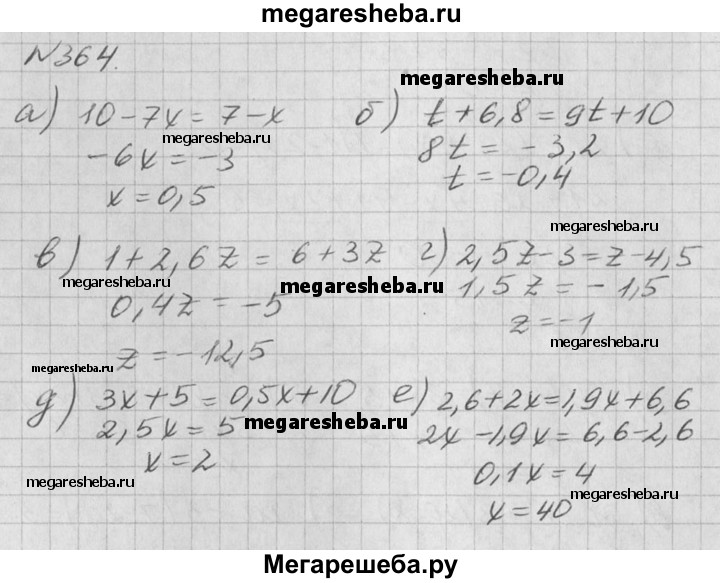 megaresheba.ru
№364.
а) 10-7x=7-x б) t+6,8=9t+10
megaresheba.ru
megaresheba.ru
-6x=-3 8t=-3,2
x=0,5 t=-0,4
megaresheba.ru
в) 1+2,6z=6+3z г) 2,5z-3=z-4,5
megaresheba.ru megaresheba.ru
0,4z=-5 1,5z=-1,5
z=-12,5 z=-1
megaresheba.ru
megaresheba.ru
д) 3x+5=0,5x+10 е) 2,6+2x=1,9x+6,6
megaresheba.ru
2,5x=5 2x-1,9x=6,6-2,6
x=2 0,1x=4
megaresheba.ru megaresheba.ru
x=40
Мегарешеба.ру